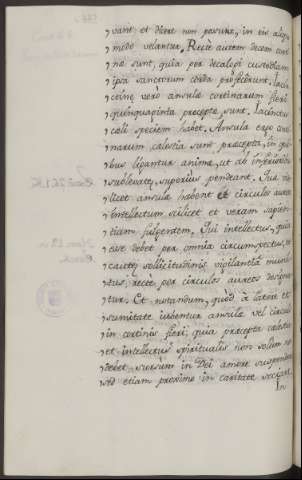 vari et docere non possunt, in eis aliquo
modo velantur. Recte autem decem cortinæ
sunt, quia per decalogi custodiam
ipsa sanctorum corda proficiunt.
vero ansulæ cortinarum fieri
quinquaginta præcepta sunt. Iacinctus
celi speciem habet. Ansula ergo cortinarum
cælestia sunt præcepta, in quibus
ligantur animæ, ut ab inferioribus
sublevatæ, superius pendeant.
licet ansula habent et circulos aureos
intellectum scilicet et veram sapientiam
Qui intellectus, quia
esse debet per omnia circumspectus, et
cautæ sollicitudinis vigilantia munitus,
recte per circulos aureos designatur.
Et notandum, quòd à latere et
sumitate iubentur ansulæ vel circuli
in cortinis fieri; quia præcepta cælestia
et intellectus spirituales non solum
debet sursum in Dei amore suspendere
sed etiam proximo in caritate sociari.
In